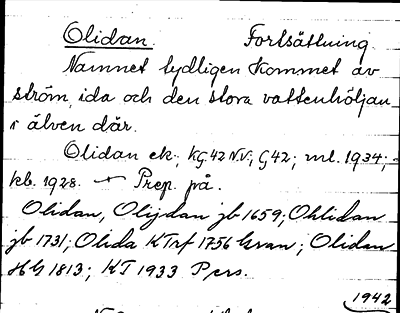 Olidan. Fortsättning.
Namnet tydligen kommet av
ström, ida och den stora vattenhöljan
i älven där.
Olidan ek.; KG.42 N.V.; G42; ml. 1934;
kb. 1928. — Prep. på.
Olidan, Olijdan jb 1659; Ohlidan
jb 1731; Olida KTrf 1756 Gran; Olidan
HG 1813; KT 1933 Pers.
1942